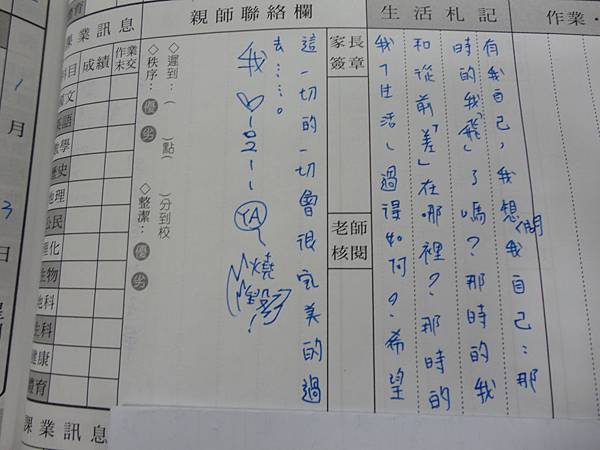 作業・
生活札記
有我自己，我想問我自己：那
時的我「飛」了嗎？那時的我
和從前「差」在哪裡？那時的
我ㄉ生活、過得如何？希望
家長簽章
老師核閱
親師聯絡欄
這一切的一切會很完美的過
去……。
我
YA
燒
◇遲到：（ ）點（ ）分到校
◇秩序：優 劣
◇整潔：優 劣
體育
課業訊息
科目 成績 作業未交
國文
英語
數學
歷史
地理
公民
理化
生物
地科
生科
健康
體育
課業訊息
月
3
日